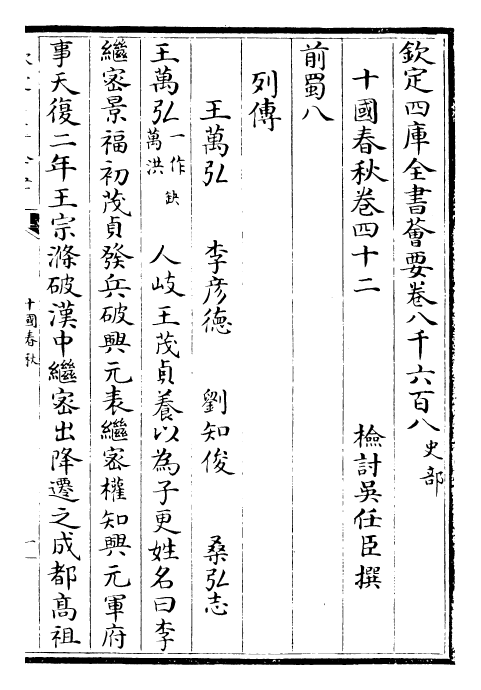 欽定四庫全書薈要卷八千六百八史部
十國春秋卷四十二 檢討吳任臣撰
前蜀八
列傳
王萬弘 李彥德 劉知俊 桑弘志
王萬弘一作萬洪 缺 人岐王茂貞養以為子更姓名曰李
繼密景福初茂貞發兵破興元表繼密權知興元軍府
事天復二年王宗滌破漢中繼密出降遷之成都高祖
十國春秋
一